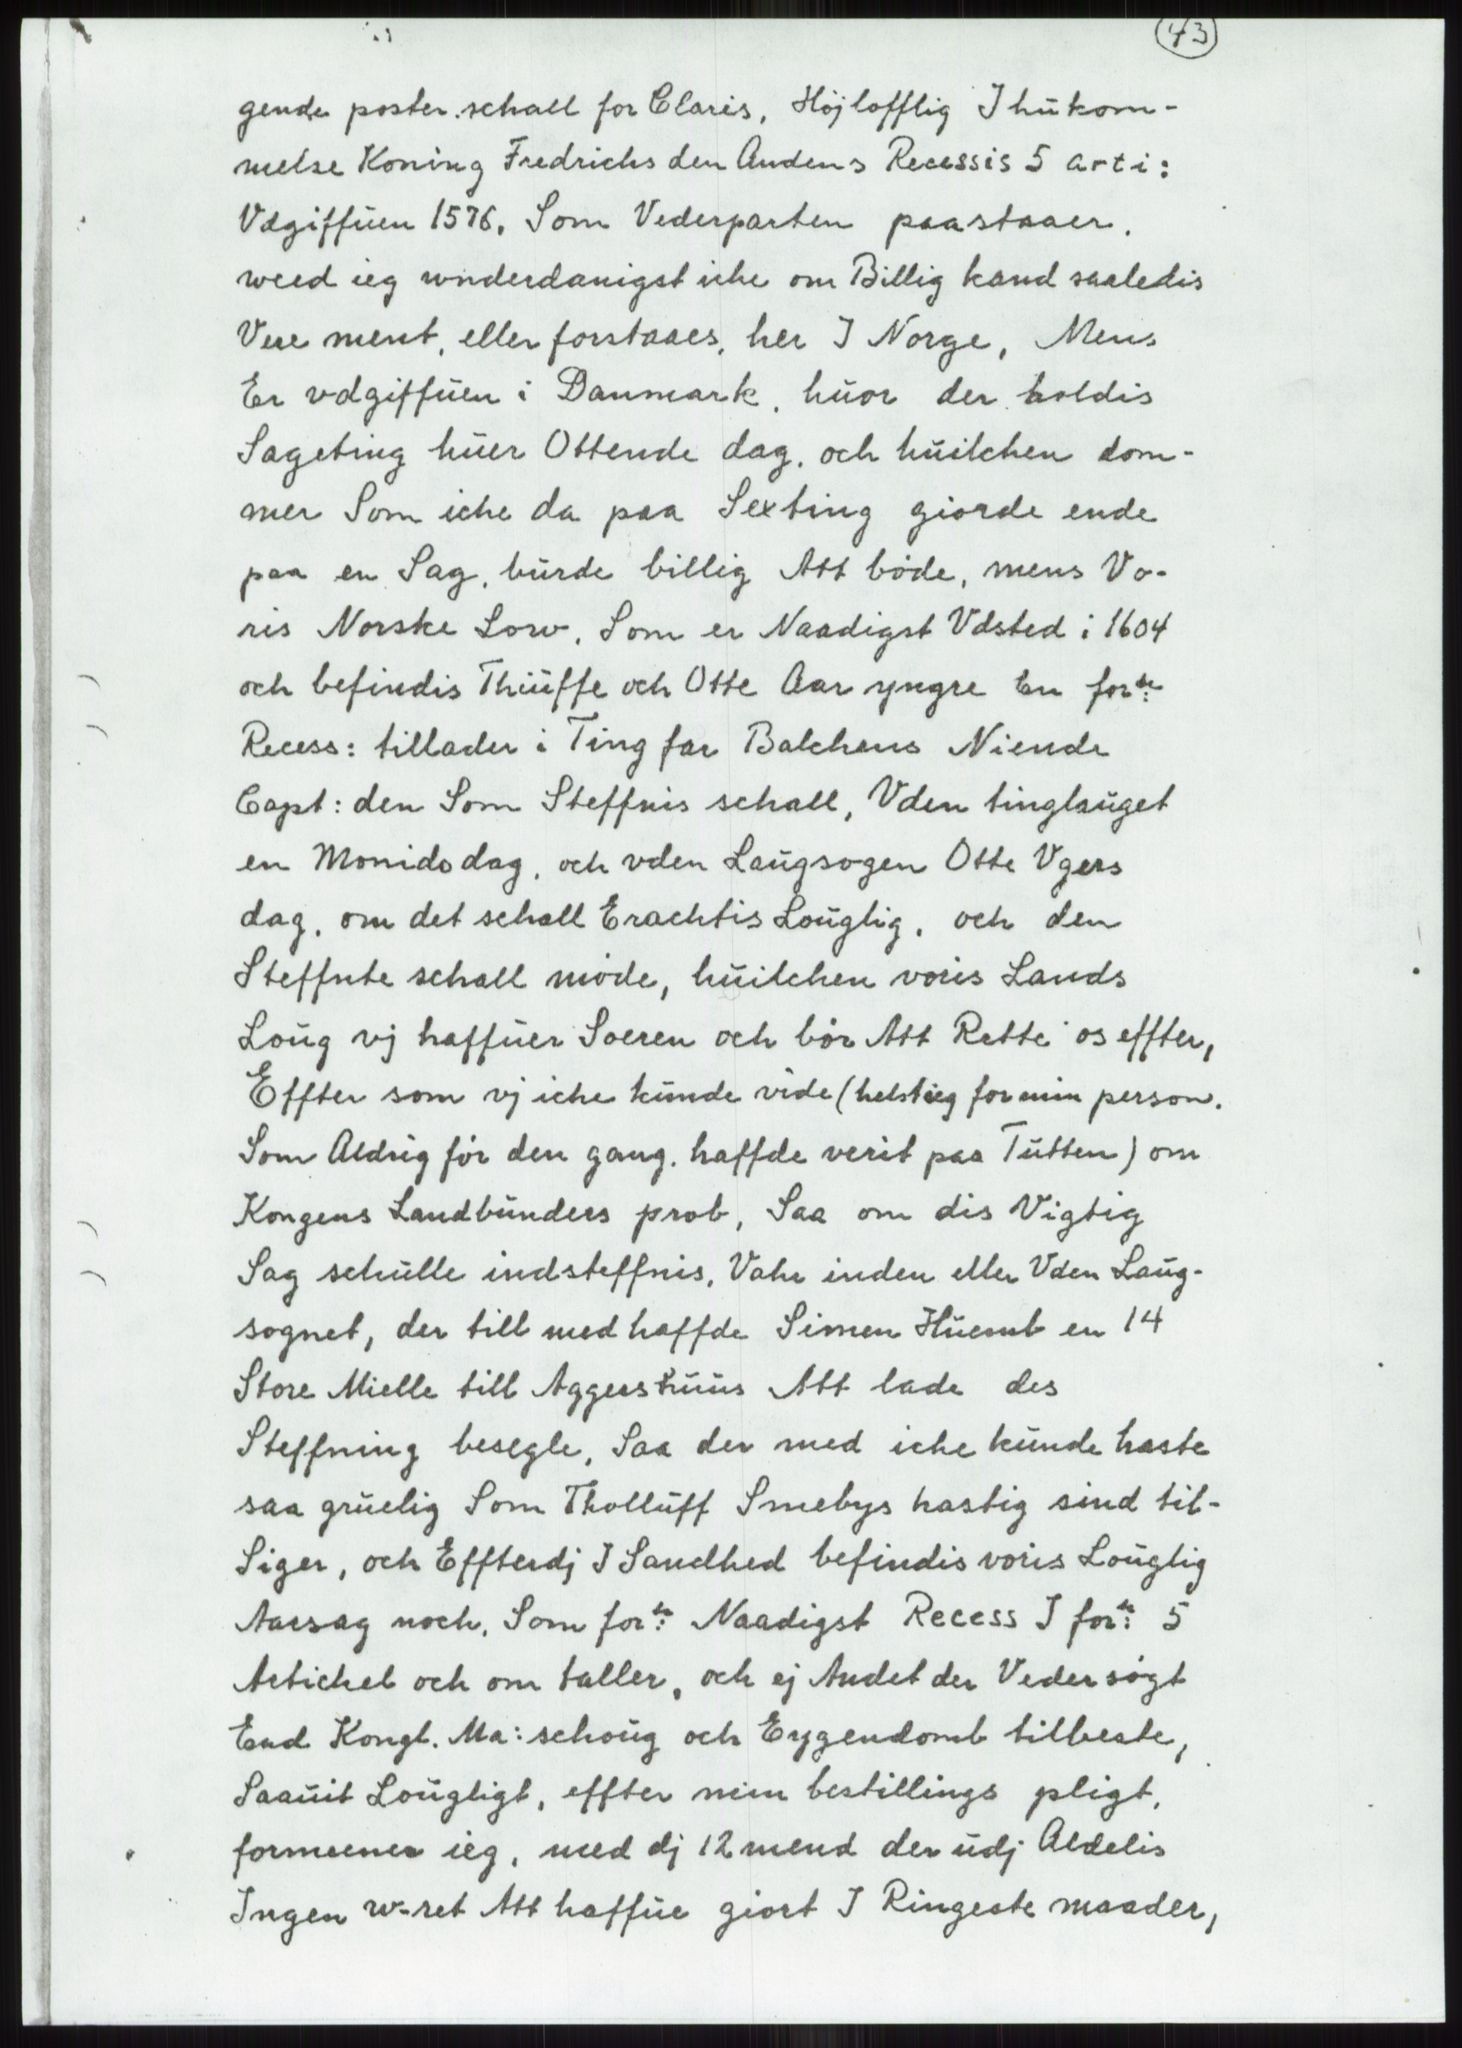 43
gende poster schall for Claris, Højlofflig Ihükom-
melse Koning Fredrichs den Andens Recessis 5 arti:
Vdgiffüen 1576, Som Vederparten paastaaer,
weed ieg wnderdanigst iche om Billig kand saaledis
Vere ment, eller forstaaes, her I Norge, Mens
Er vdgiffüen i Danmark, hüor der holdis
Sageting hüer Ottende dag, och hüilchen dom-
mer Som iche da paa Sexting giorde ende
paa en Sag, bürde billig Att bøde, mens Vo-
ris Norske Low, Som er Naadigst Vdsted i 1604
och befindis Thiüffe och Otte Aar yngre En forde:
Recess: tillader i Ting far Balchens Niende
Capt: den Som Steffnis schall, Vden tinglauget
en Monidsdag, och vden Laügsogen Otte Vgers
dag, om det schall Erachtis Loüglig, och den
Steffnte schall møde, hüilchen voris Lands
Loüg vj haffüer Soeren och bør Att Rette os effter,
Effter som vj iche künde vide (helst ieg for min person,
Som Aldrig før den gang, haffde verit paa Tütten) om
Kongens Landbünders prob, Saa om dis Vigtig
Sag schülle indsteffnis, Vahr inden eller Vden Laüg-
sognet, der till med haffde Simen Hüemb en 14
Store Mielle till Aggershüüs Att lade des
Steffning besegle, Saa der med iche künde haste
saa grüelig Som Tholluff Smebys hastig sind til-
Siger, och Effterdj I Sandhed befindis voris Loüglig
Aarsag noch, Som forde: Naadigst Recess I forde: 5
Artichel och om taller, och ej Andet der Veder søgt
End Kongl. Ma: schoüg och Eygendomb tilbeste,
Saauit Loügligt, effter min bestillings pligt,
formeener ieg, med dj 12 mend der üdj Aldelis
Ingen w-ret Att haffüe giort I Ringeste maader,